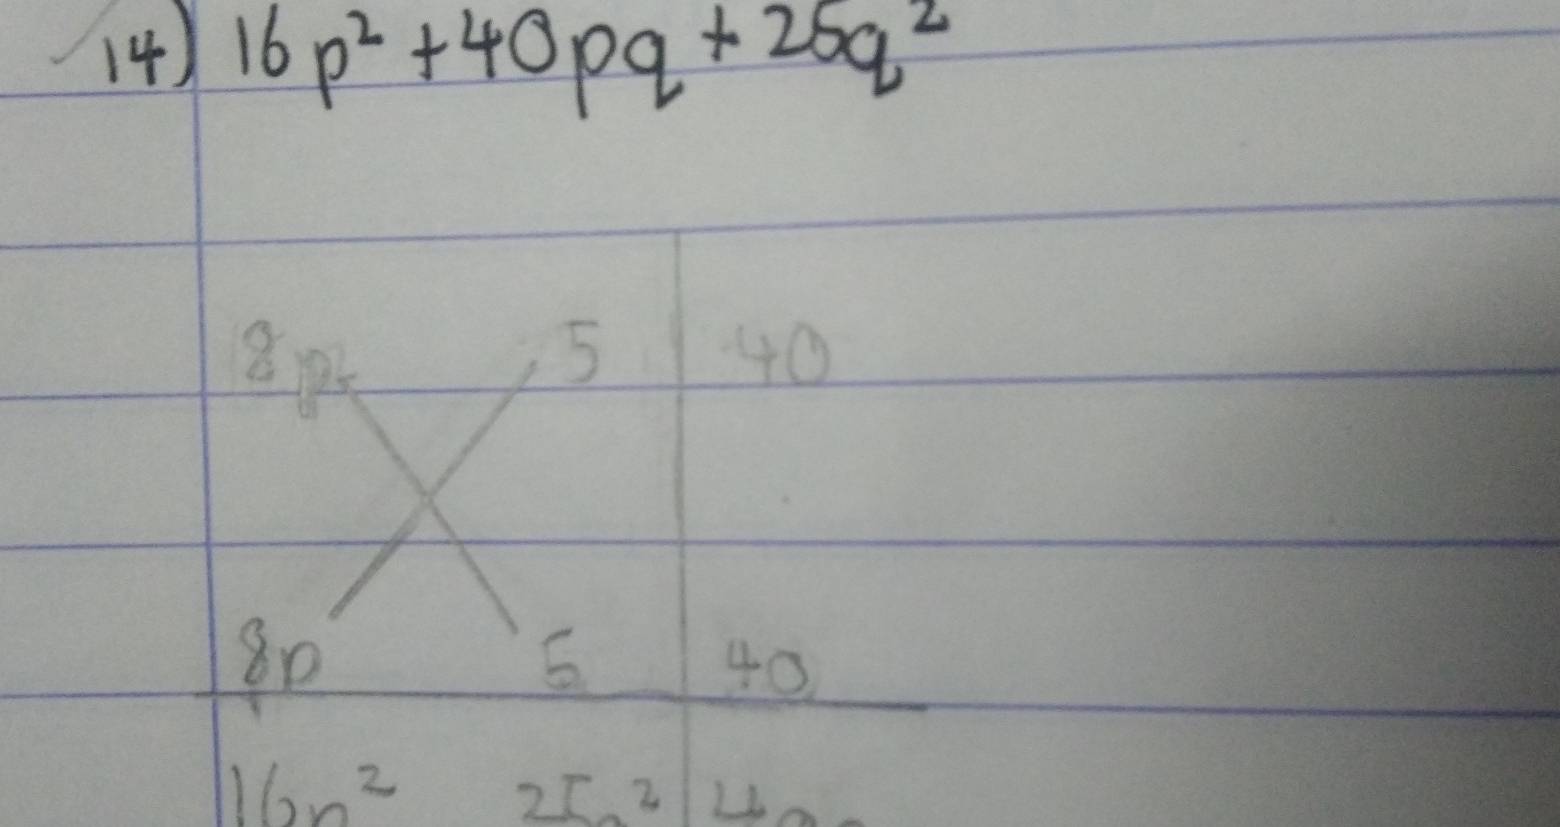 14) 16p² + 40pq + 25q²
8p 5 40
8p 5 40
16p² 25q² 40